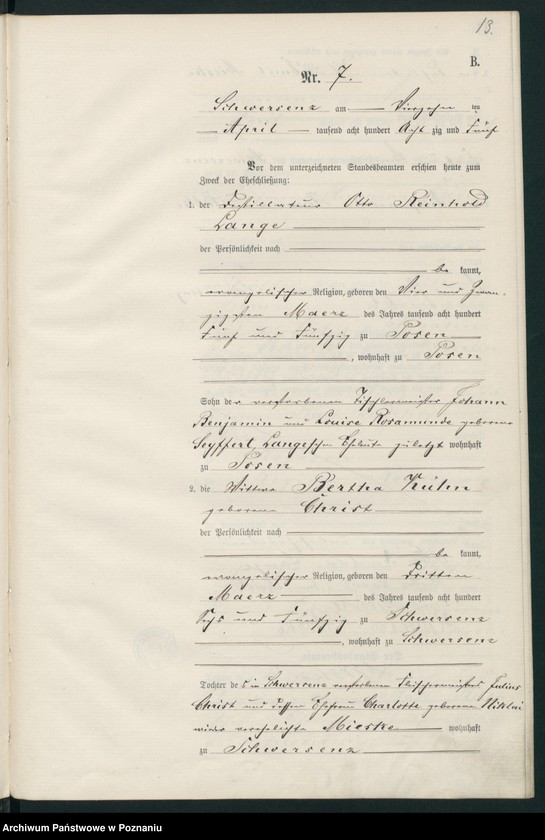 13.
B.
Nr. 7.
Schwersenz am Vierzehn ten
April tausend acht hundert Acht zig und Fünf
Vor dem unterzeichneten Standesbeamten erschien heute zum
Zweck der Eheschließung:
1. der Destillateur Otto Reinhold
Lange
der Persönlichkeit nach
be kannt,
evangelischer Religion, geboren den Vier und Zwan-
zigsten Maerz des Jahres tausend acht hundert
Fünf und Fünfzig zu Posen
, wohnhaft zu Posen
Sohn der verstorbenen Tischlermeister Johann
Benjamin und Louise Rosamunde geborene
Seyffert, Langeschen Eheleute zuletzt wohnhaft
zu Posen
2. die Wittwe Bertha Kühn
geborene Christ
der Persönlichkeit nach
be kannt,
evangelischer Religion, geboren den Dritten
Maerz des Jahres tausend acht hundert
Sechs und Fünfzig zu Schwersenz
, wohnhaft zu Schwersenz
Tochter des in Schwersenz verstorbenen Fleischermeisters Julius
Christ und dessen Ehefrau Charlotte geborene Niklai
wieder verehelichte Mieske wohnhaft
zu Schwersenz
Archiwum Państwowe w Poznaniu